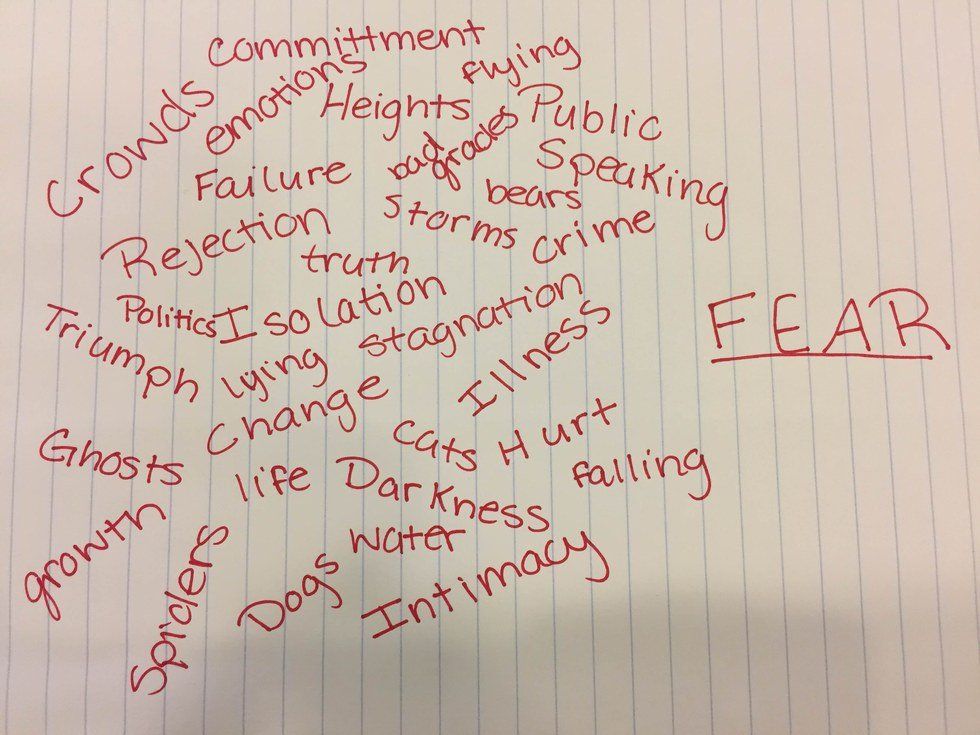 committment
flying
Crowds
emotions
Heights
Public
Speaking
bad
grades
Failure
bears
storms
crime
Rejection
truth
Politics
Isolation
stagnation
FEAR
Triumph
lying
Illness
change
cats
Hurt
Ghosts
life
Darkness
falling
growth
water
Spiders
Dogs
Intimacy